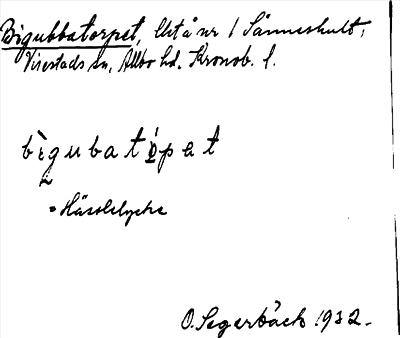 Bigubbatorpet, Urå nr 1 Sånneshult,
Virestads sn, Allbo hd. Kronob. l.
bìgubatǫ́pet
= Hässlelycke
O. Segerbäck 1932.